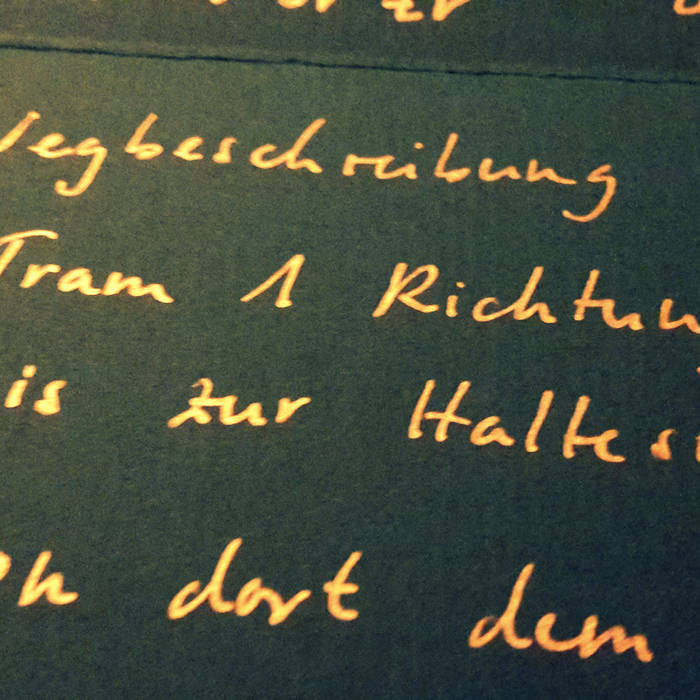 Wegbeschreibung
Tram 1 Richtun
is zur Haltes
on dort dem